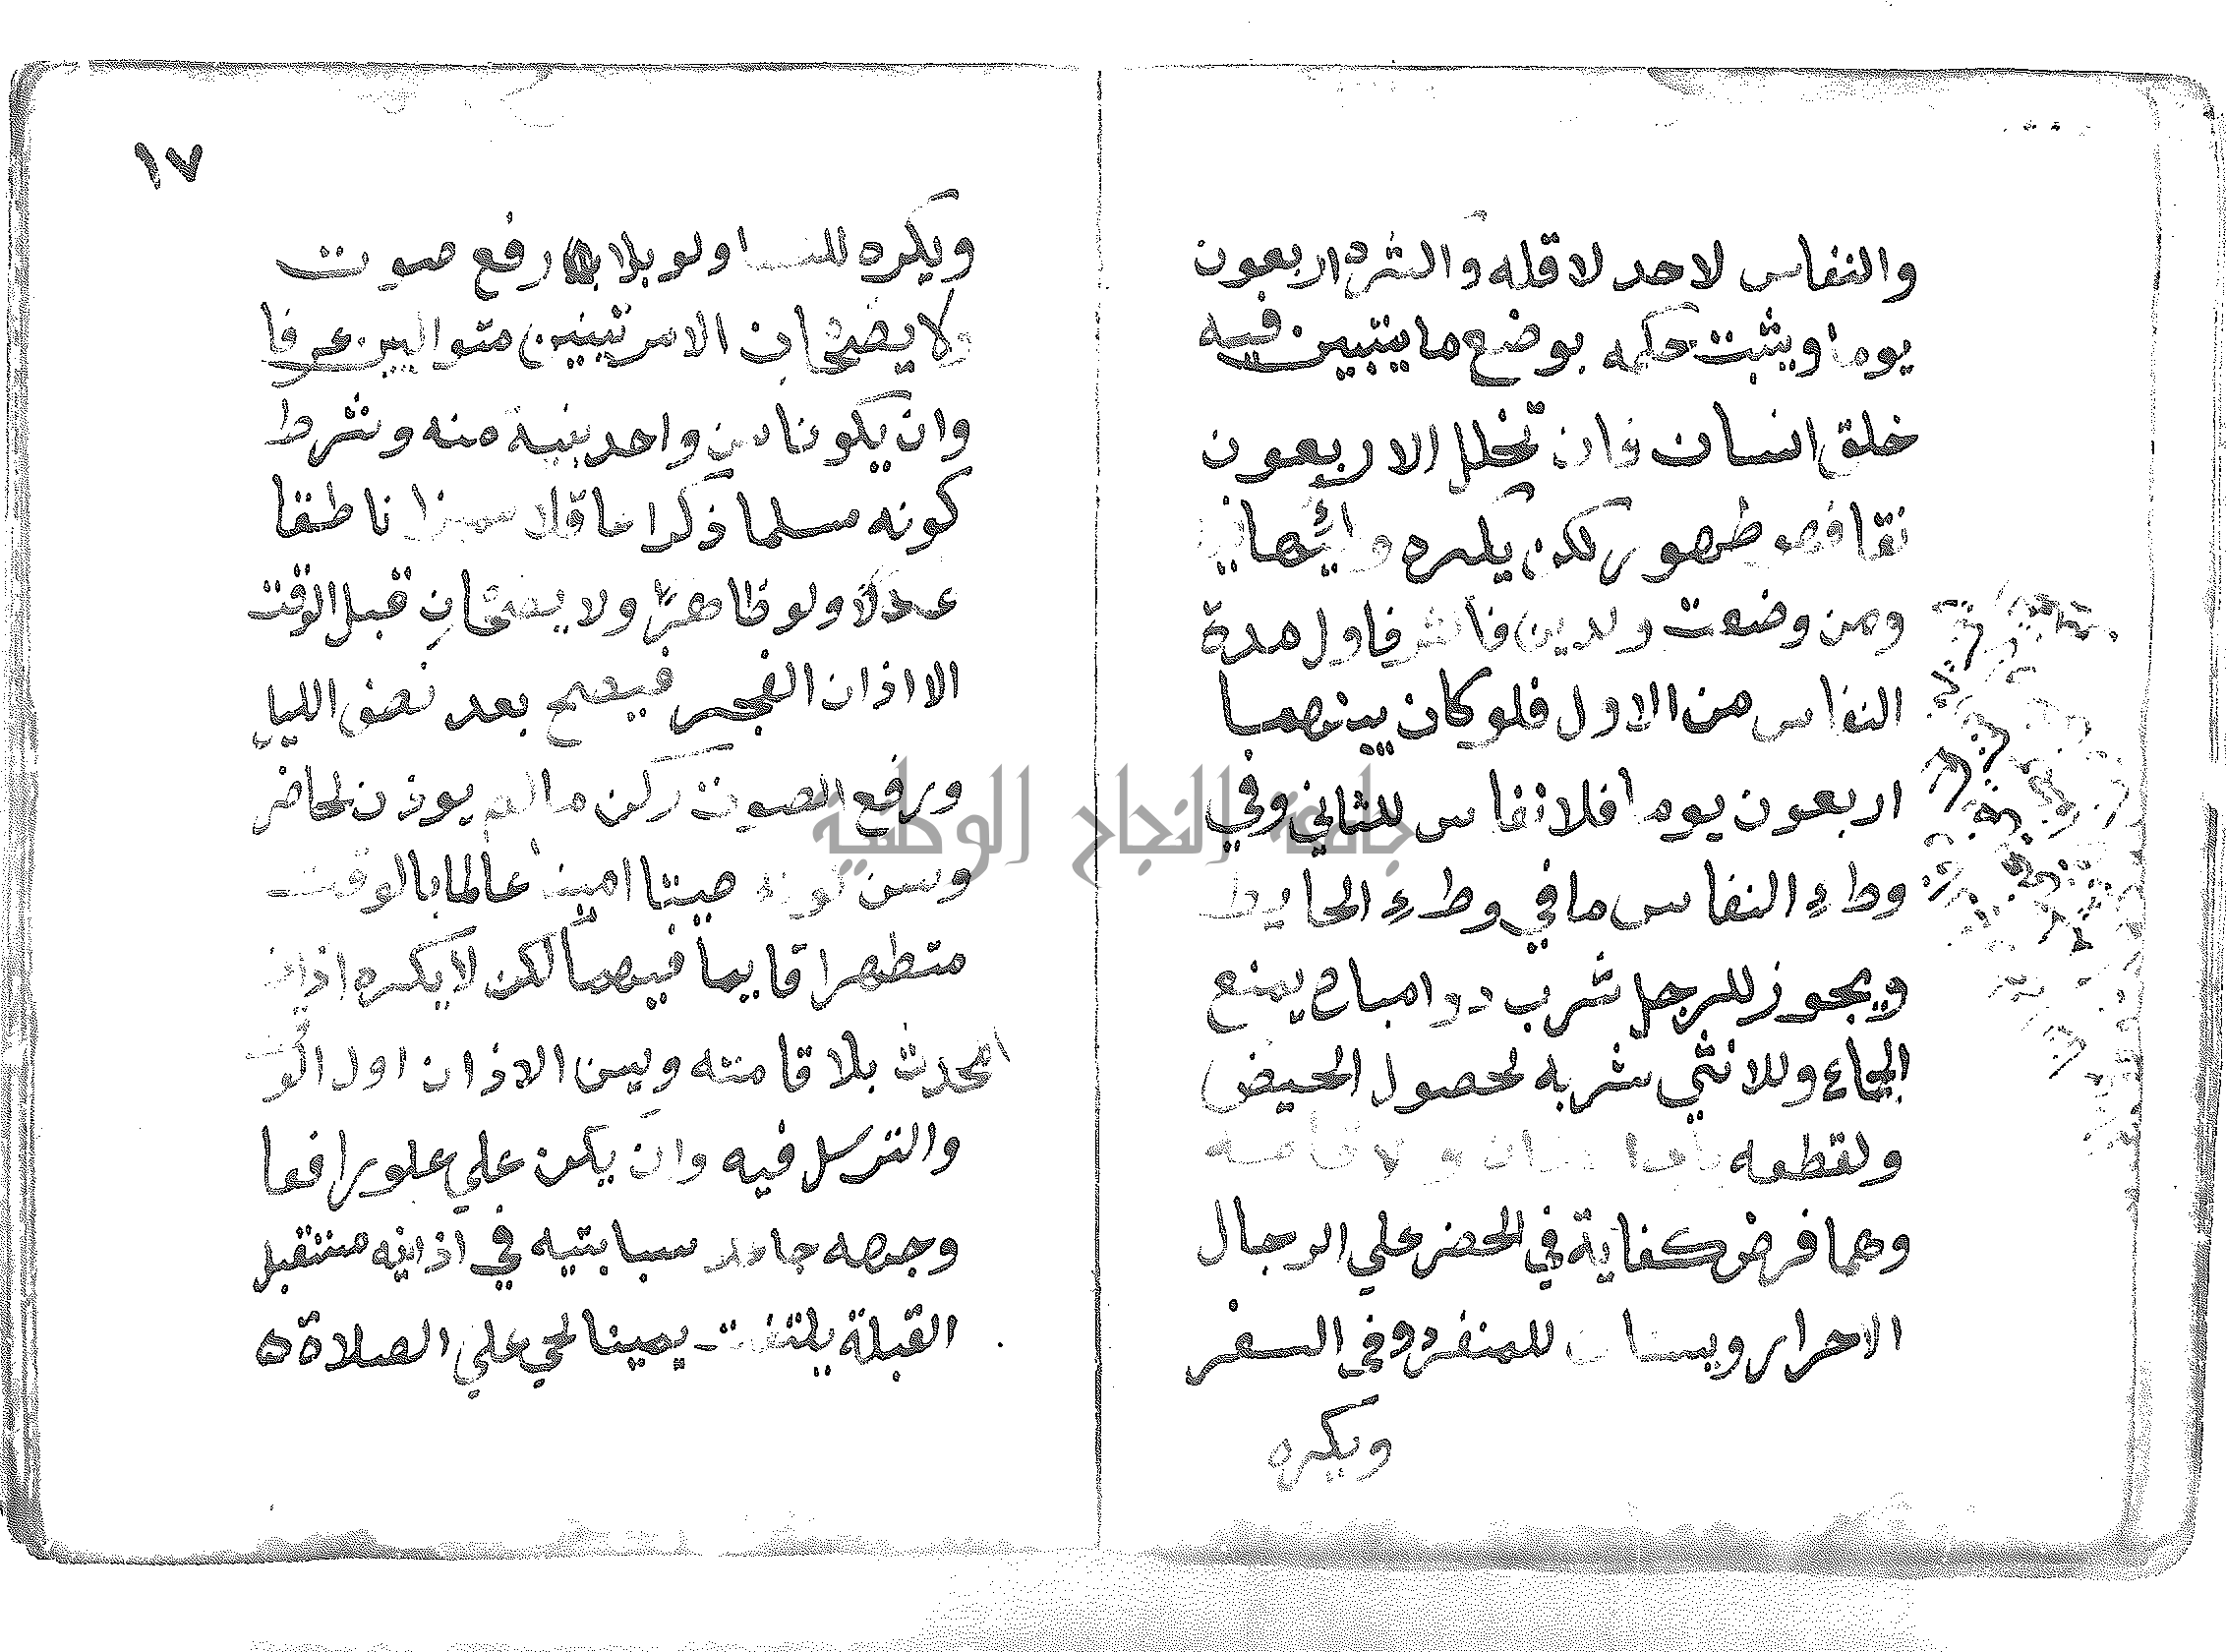 والنفاس لاحد لاقله واكثره اربعون
يوما ويثبت حكمه بوضع مايتبين فيه
خلق انسان فان تخلل الاربعون
نقا فهو طهور لكن يكره وطئها فيه
ومن وضعت ولدين فاكثر فاول مدة
النفاس من الاول فلو كان بينهما
اربعون يوما فلا نفاس للثاني وفي
وطءِ النفاس مافي وطءِ الحايض
ويجوز للرجل شرب دوا مباح يمنع
الجماع وللانثي شربه لحصول الحيض
ولقطعه باب الاذان والاقامة
وهما فرض كفاية في الحضر علي الرجال
الاحرار ويسنان للمنفرد وفي السفر
ويكره
١٧
ويكره للنسا ولو بلا رفع صوت
ولا يصحان الا مرتبين متواليين عرفا
وان يكونا من واحد بنية منه وشرط
كونه مسلما ذكرا عاقلا مميزا ناطقا
عدلا ولو ظاهرا ولا يصحان قبل الوقت
الا اذان الفجر فيصح بعد نصف الليل
ورفع الصوت ركن مالم يوذن لحاضر
وسن كونه صيتا امينا عالما بالوقت
متطهرا قايما فيهما لكن لا يكره اذان
المحدث بلا اقامته ويسن الاذان اول الوقت
والترسل فيه وان يكن علي علو رافعا
وجهه جاعلا سبابتيه في اذنيه مستقبل
القبلة يلتفت يمينا لحي علي الصلاة
جامعة النجاح الوطنية